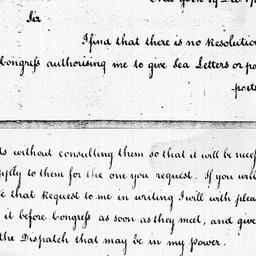 Sir
I find that there is no Resolution
Congreſs authorising me to give Sea Letters or pa
without consulting them so that it will be
apply to them for the one you request. If you will
that Request to me in writing I will with
it before Congreſs as soon as they meet, and give
the Dispatch that may be in my power.